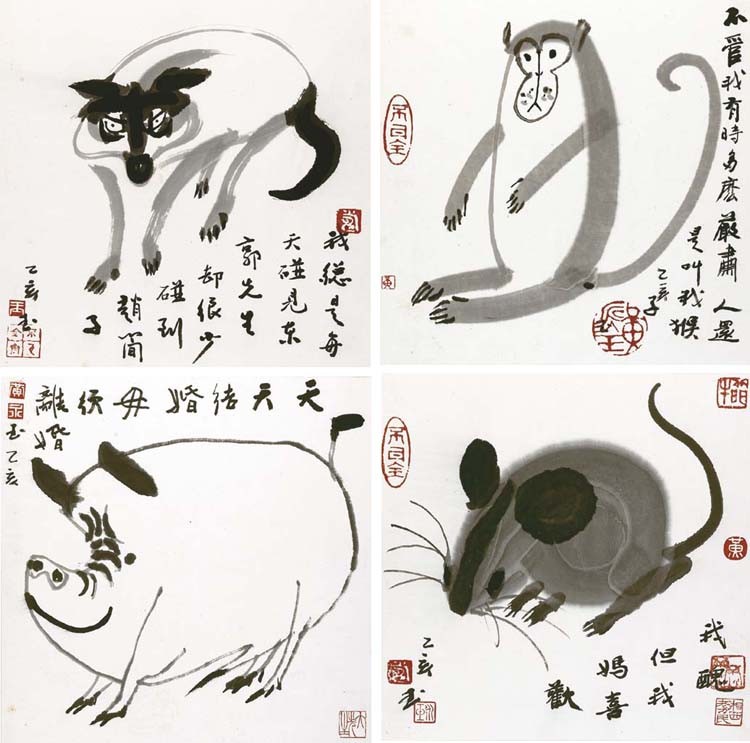 我總是每
天碰見東
郭先生
却很少
碰到
趙簡
子
乙亥玉
不管我有時多麽嚴肅人還
是叫我猴
子
乙亥
天天結婚毋須
離婚
玉乙亥
我醜
但我
媽喜
歡
乙亥玉
黃